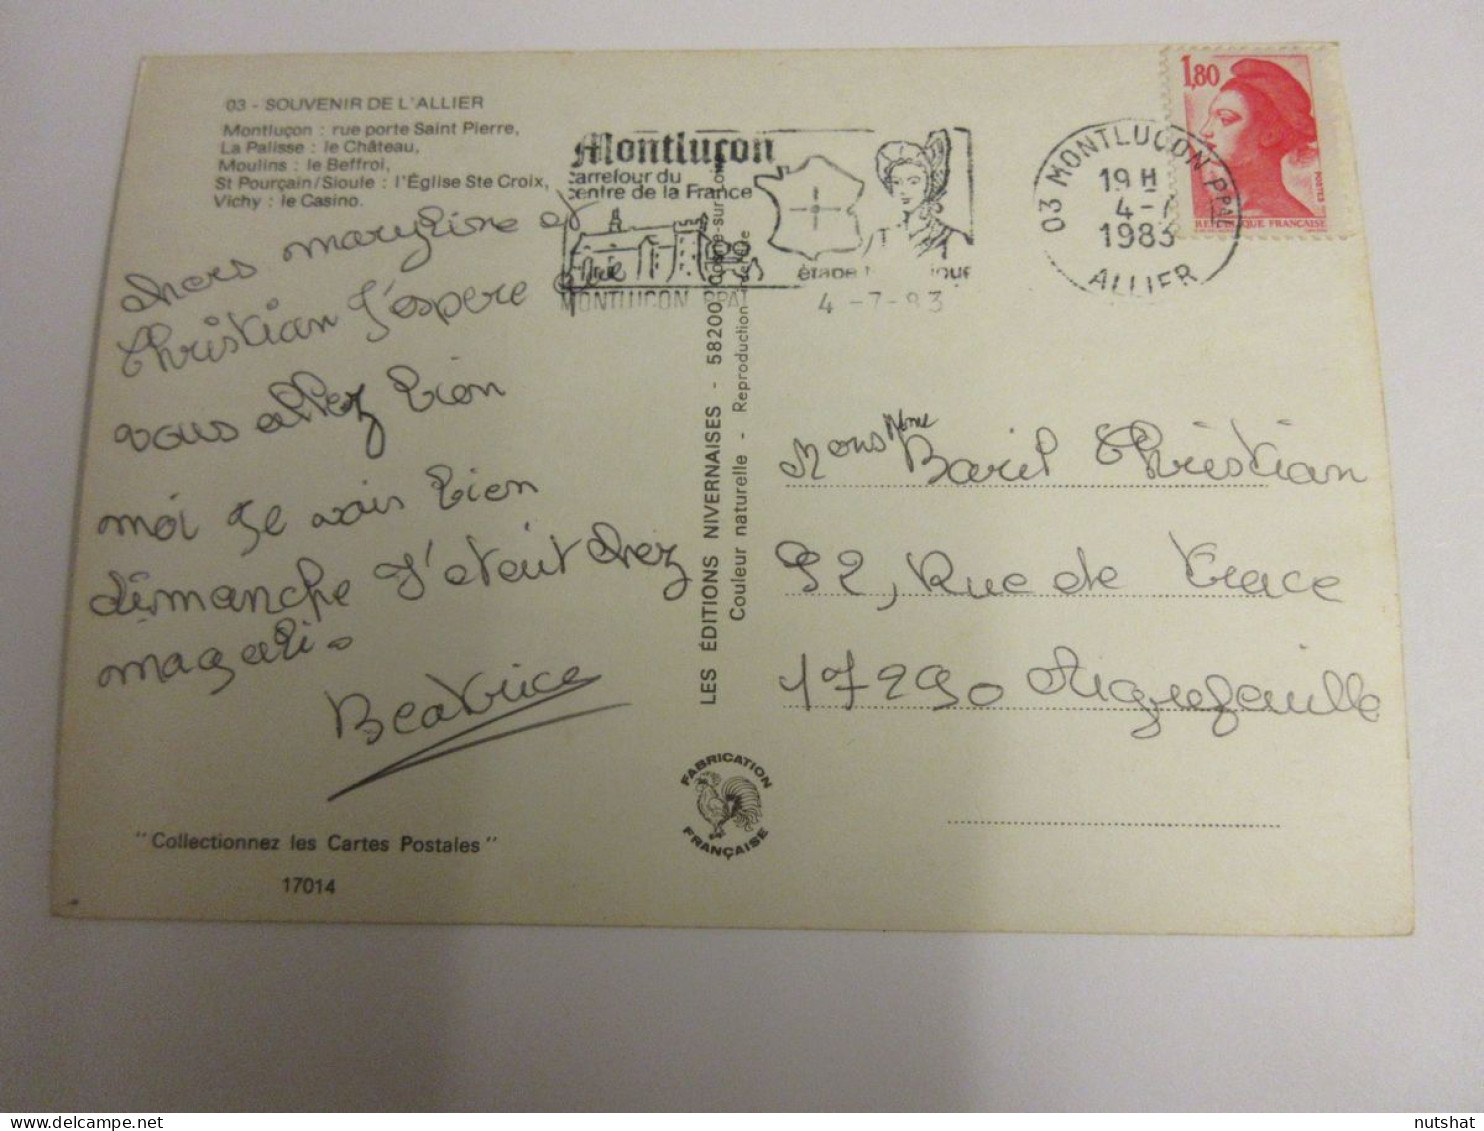 03 - SOUVENIR DE L'ALLIER
Montluçon : rue porte Saint Pierre,
La Palisse : le Château,
Moulins : le Beffroi,
St Pourçain/Sioule : l'Église Ste Croix,
Vichy : le Casino.
chers marylise et
Christian J'espere que
vous allez bien
moi je vais bien
dimanche J'etait chez
magali.
Beatrice
"Collectionnez les Cartes Postales"
17014
LES ÉDITIONS NIVERNAISES - 58200 Cosne-sur-Loire
Couleur naturelle - Reproduction interdite
FABRICATION
FRANÇAISE
Montluçon
carrefour du
centre de la France
étape
MONTLUCON PPAL
4-7-83
03 MONTLUCON PPAL
19 H
4-7
1983
ALLIER
1,80
POSTES
REPUBLIQUE FRANÇAISE
Mons Mme Baril Christian
92, Rue de
17290 Aigrefeuille
nutshat